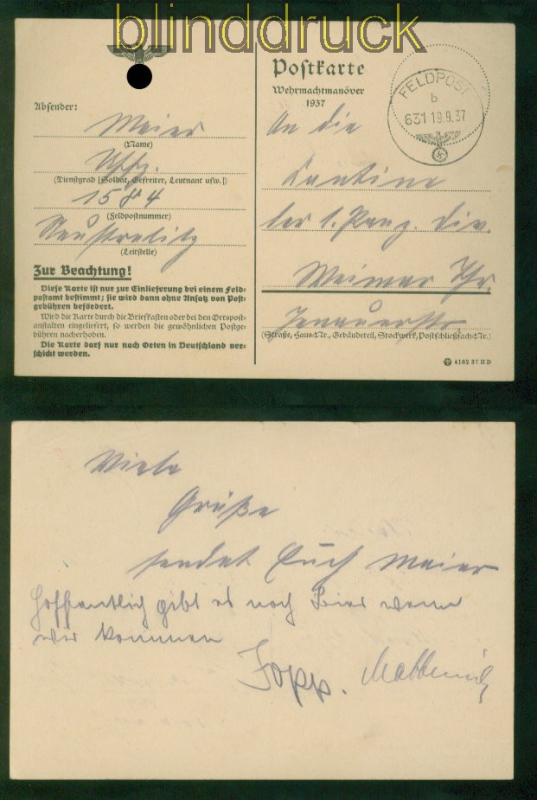 blinddruck
Postkarte
Wehrmachtmanöver
1937
FELDPOST
b
631 19.9.37
Absender:
Meier
(Name)
Uffz.
(Dienstgrad [Soldat, Gefreiter, Leutnant usw.])
15844
(Feldpostnummer)
Neustrelitz
(Leitstelle)
Zur Beachtung!
Diese Karte ist nur zur Einlieferung bei einem Feld-
postamt bestimmt; sie wird dann ohne Ansatz von Post-
gebühren befördert.
Wird die Karte durch die Briefkasten oder bei den Ortspost-
anstalten eingeliefert, so werden die gewöhnlichen Postge-
bühren nacherhoben.
Die Karte darf nur nach Orten in Deutschland ver-
schickt werden.
An die
Kantine
der 1. Panz. Div.
Weimar Thr
Jenaerstr.
(Straße, Haus-Nr., Gebäudeteil, Stockwerk, Postschließfach-Nr.)
4162 37 II D
Viele
Grüße
sendet Euch Meier
Hoffentlich gibt es noch Bier wenn
wir kommen
Jopp.